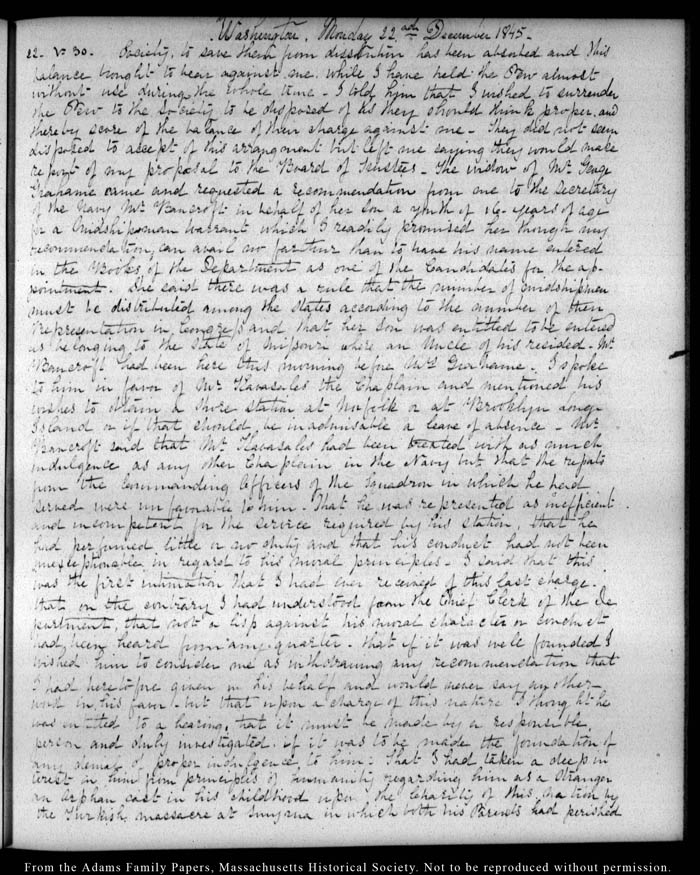 Washington. Monday 22.nd December 1845.
22. V:30. Society, to save them from dissolution has been absorbed and this
balance brought to bear against me. while I have held the Pew almost
without use during the whole time - I told him that I wished to surrender
the Pew to the Society to be disposed of as they should think proper, and
thereby score of the balance of their charge against me - They did not seem
disposed to accept of this arrangement but left me saying they would make
report of my proposal to the Board of Trustees - The widow of Mr. George
Grahame came and requested a recommendation from me to the Secretary
of the Navy Mr Bancroft in behalf of her Son a youth of 16 years of age
for a Midshipman warrant which I readily promised her though my
recommendation can avail no farther than to have his name entered
in the Books of the Department as one of the Candidates for the ap-
pointment. She said there was a rule that the number of midshipmen
must be distributed among the States according to the number of their
representation in Congress and that her Son was entitled to be entered
as belonging to the State of Missouri where an Uncle of his resided - Mr
Bancroft had been here this morning before Mrs Grahame. I spoke
to him in favor of Mr Havasales the Chaplain and mentioned his
wishes to obtain a Shore station at Norfolk or at Brooklyn Long-
Island or if that should be inadmissible a leave of absence - Mr
Bancroft said that Mr Havasales had been treated with as much
indulgence as any other Chaplain in the Navy but that the reports
from the Commanding Officers of the Squadron in which he had
served were unfavorable to him. That he was represented as inefficient
and incompetent for the service required by his station, that he
had performed little or no duty and that his conduct had not been
unexceptionable in regard to his moral principles - I said that this
was the first intimation that I had ever received of this last charge.
that on the contrary I had understood from the Chief Clerk of the De-
partment, that not a lisp against his moral character or conduct
had been heard from any quarter. that if it was well founded I
wished him to consider me as withdrawing any recommendation that
I had heretofore given in his behalf and would never say another
word in his favor - but that upon a charge of this nature I thought he
was entitled to a hearing, that it must be made by a responsible
person and duly investigated. if it was to be made the foundation of
any denial of proper indulgence to him: That I had taken a deep in-
terest in him from principles of humanity regarding him as a Stranger
an orphan cast in his childhood upon the Charity of this Nation by
the Turkish massacre at Smyrna in which both his Parents had perished
From the Adams Family Papers, Massachusetts Historical Society. Not to be reproduced without permission.